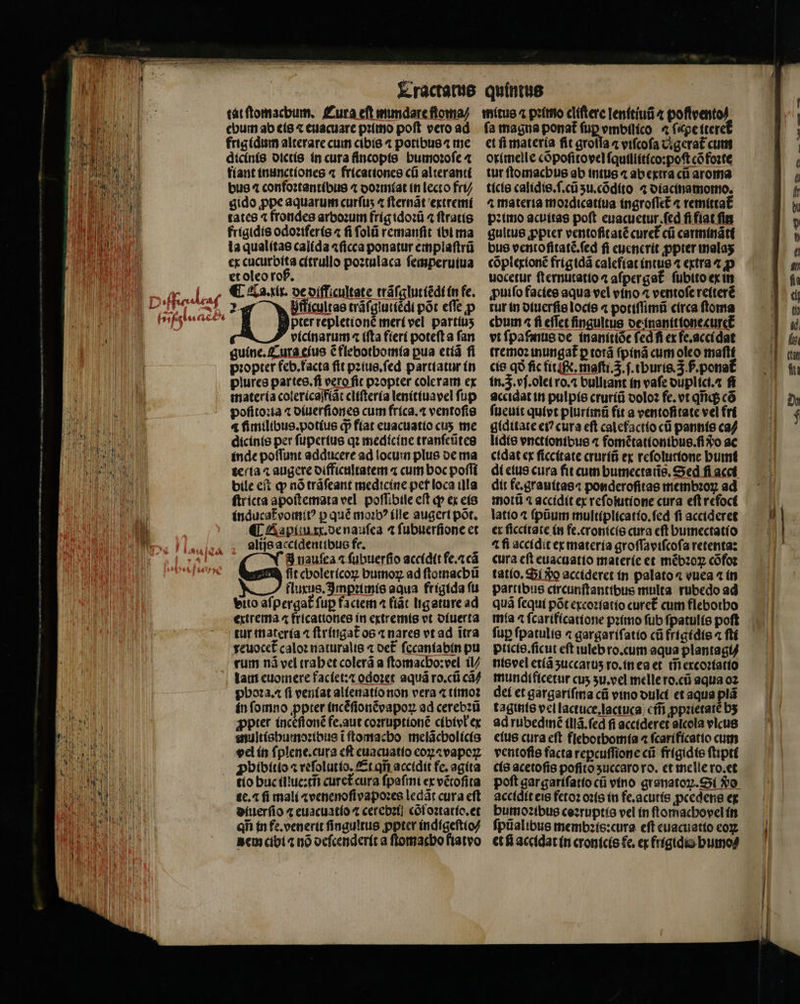 Tractatus quintus
tat stomachum. Cura est mundare stoma/
chum ab eis ⁊ euacuare primo post vero ad
frigidum alterare cum cibis ⁊ potibus ⁊ me
dicinis dictis in cura sincopis humorose ⁊
fiant inunctiones ⁊ fricationes cū alteranti
bus ⁊ confortantibus ⁊ dormiat in lecto fri/
gido ꝓpe aquarum cursus ⁊ sternāt extremi
tates ⁊ frondes arborum frigidorū ⁊ stratis
frigidis odoriferis ⁊ si solū remansit ibi ma
la qualitas calida ⁊ sicca ponatur emplastrū
ex cucurbita citrullo portulaca semperuiua
et oleo ros̄.
¶ Ca.xix. de difficultate trāsglutiēdi in fe.
Difficultas
trāsglutiēdi
2
Difficultas trāsglutiēdi pōt esse ꝓ
pter repletionē meri vel partiuȝ
vicinarum ⁊ ista fieri potest a san
guine. Cura eius ē flebothomia qua etiā si
propter feb. facta sit prius. sed partiatur in
plures partes. si vero sit propter coleram ex
materia colerica fiāt clisteria lenitiua vel sup
positoria ⁊ diuersiones cum frica. ⁊ ventosis
⁊ similibus. potius ꝙ̄ fiat euacuatio cuȝ me
dicinis per superius qꝛ medicine transeūtes
inde possunt adducere ad locum plus de ma
teria ⁊ augere difficultatem ⁊ cum hoc possi
bile est ꝙ nō trāseant medicine pet loca illa
stricta apostemata vel possibile est ꝙ ex eis
inducat̄ vomit⁹ ꝑ quē morb⁹ ille augeri pōt.
¶ Capitu.xx. de nausea ⁊ subuersione et
alijs accidentibus fe.
De Nausea
subuersione
Si nausea ⁊ subuersio accidit fe. ⁊ cā
sit cholericoꝝ humoꝝ ad stomachū
fluxus. Imprimis aqua frigida su
bito aspergat̄ suꝑ faciem ⁊ fiāt ligature ad
extrema ⁊ fricationes in extremis vt diuerta
tur materia ⁊ stringat̄ os ⁊ nares vt ad ītra
reuocet̄ calor naturalis ⁊ det̄ siccaniabin pu
rum nā vel trahet colerā a stomacho: vel il/
lam euomere faciet: ⁊ odoret aquā ro. cū cā/
phora. ⁊ si veniat alienatio non vera ⁊ timor
in somno ꝓpter incēsionē vapoꝝ ad cerebrū
ꝓpter incēsionē fe. aut corruptionē cibi vl̄ ex
multis humoribus ī stomacho melācholicis
vel in splene. cura est euacuatio eoꝝ ⁊ vapoꝝ
ꝓhibitio ⁊ resolutio. Et qn̄ accidit fe. agita
tio huc illuc: tn̄ curet̄ cura spasmi ex vētosita
te. ⁊ si mali ⁊ venenosi vapores ledāt cura est
diuersio ⁊ euacuatio ⁊ cerebri cōfortatio. et
qn̄ in fe. venerit singultus ꝓpter indigestio/
nem cibi ⁊ nō descenderit a stomacho fiat vo
mitus ⁊ primo clistere lenitiuū ⁊ post vento/
sa magna ponat̄ suꝑ vmbilico ⁊ sepe iteret̄
et si materia sit grossa ⁊ viscosa digerat̄ cum
oximelle cōposito vel squillitico: post cōforte
tur stomachus ab intus ⁊ ab extra cū aroma
ticis calidis. s. cū zu. cōdito ⁊ diacinamomo.
⁊ materia mordicatiua ingrosset̄ ⁊ remittat̄
primo acuitas post euacuetur. sed si fiat sin
gultus ꝓpter ventositatē curet̄ cū carmināti
bus ventositatē. sed si euenerit ꝓpter malaȝ
cōplexionē frigidā calefiat intus ⁊ extra ⁊ ꝓ
uocetur sternutatio ⁊ aspergat̄ subito ex im
ꝓuiso facies aqua vel vino ⁊ ventose reiterē
tur in diuersis locis ⁊ potissimū circa stoma
chum ⁊ si esset singultus de inanitione curet̄
vt spasmus de inanitiōe sed si ex fe. accidat
tremor inungat̄ ꝑ totā spinā cum oleo masti
cis qd̄ sic fit. ℞. masti. ʒ.s. thuris. ʒ.s. ponat̄
in. ʒ.vj. olei ro. ⁊ bulliant in vase duplici. ⁊ si
accidat in pulpis cruriū dolor fe. vt qn̄cꝫ cō
sueuit quivt plurimū fit a ventositate vel fri
giditate ei⁹ cura est calefactio cū pannis ca/
lidis vnctionibus ⁊ fomētationibus. si v̊o ac
cidat ex siccitate cruriū ex resolutione humi
di eius cura fit cum humectatis. Sed si acci
dit fe. grauitas ⁊ ponderositas membroꝝ ad
motū ⁊ accidit ex resolutione cura est refoci
latio ⁊ spūum multiplicatio. sed si accideret
ex siccitate in fe. cronicis cura est humectatio
⁊ si accidit ex materia grossa viscosa retenta:
cura est euacuatio materie et mēbroꝝ cōfor
tatio. Si v̊o accideret in palato ⁊ vuea ⁊ in
partibus circunstantibus multa rubedo ad
quā sequi pōt excoriatio curet̄ cum flebotho
mia ⁊ scarificatione primo sub spatulis post
suꝑ spatulis ⁊ gargarisatio cū frigidis ⁊ sti
pticis. sicut est iuleb ro. cum aqua plantagi/
nis vel etiā zuccaruȝ ro. in ea et tn̄ excoriatio
mundificetur cuȝ zu. vel melle ro. cū aqua or
dei et gargarisma cū vino dulci et aqua plā
taginis vel lactuce. lactuca em̄ ꝓprietatē hȝ
ad rubedinē illā. sed si accideret alcola vlcus
eius cura est flebothomia ⁊ scarificatio cum
ventosis facta repcussione cū frigidis stipti
cis acetosis posito zuccaro ro. et melle ro. et
post gargarisatio cū vino granatoꝝ. Si v̊o
accidit eis fetor oris in fe. acutis ꝓcedens ex
humoribus corruptis vel in stomacho vel in
spūalibus membris: cura est euacuatio eoꝝ
et si accidat in cronicis fe. ex frigidis humo/